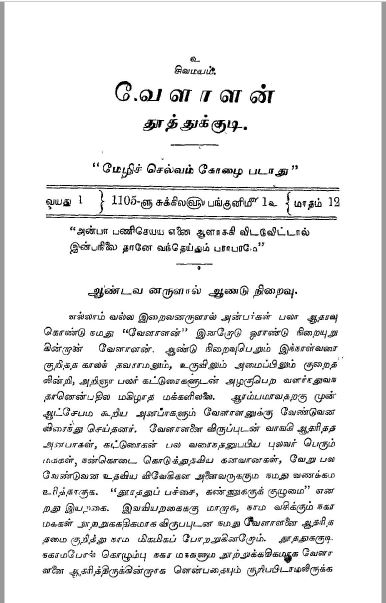 உ
சிவமயம்.
வேளாளன்
தூத்துக்குடி.
"மேழிச் செல்வம் கோழை படாது"
வயது 1 } 1105-ளு சுக்கிலளு பங்குனிமீ 1உ { மாதம் 12
"அன்பா பணிசெய்ய எனை ஆளாக்கி விட்டுவிட்டால்
இன்பநிலை தானே வந்தெய்தும் பராபரமே"
ஆண்டவ னருளால் ஆண்டு நிறைவு.
எல்லாம் வல்ல இறைவனருளால் அன்பர்கள் பலர் ஆதரவு
கொண்டு நமது "வேளாளன்" இனறோடு ஓராண்டு நிறையுறு
கின்றான் வேளாளன். ஆண்டு நிறைவுபெறும் இந்நாள்வரை
குறித்த காலந் தவராமலும், உருவிலும் அமைப்பிலும் குறைந்
கின்றி, அறிஞர் பலர் கட்டுரைகளுடன் அழகுபெற வளர்ந்துவந்
தானென்பதில் மகிழாத மக்களிலலை. ஆரம்பமாவதற்கு முன்
ஆட்சேபம் கூறிய அன்பர்களும் வேளாளனுக்கு வேண்டுவன
விரைந்து செய்தனர். வேளாளனை விருப்புடன் வாங்கி ஆதரித்த
அன்பர்கள், கட்டுரைகள் பல வரைந்தனுப்பிய புலவர் பெரும்
மக்கள், நன்கொடை கொடுத்துதவிய கனவான்கள், வேறு பல
வேண்டுவன உதவிய விவேகிகள் அனைவருக்கும் நமது வணக்கம்
உரித்தாகுக. "தூரத்துப் பச்சை, கண்ணுக்குக் குளுமை" என்
றது இயற்கை. இவ்வியற்கைக்கு மாறாக, நாம் வசிக்கும் நகர
மக்கள் நூற்றுக்கதிகமாக விருப்புடன் நமது வேளாளனை ஆதரித்
தமை குறித்து நாம் மிகமிகப் போற்றுகின்றோம். தூத்துக்குடி
நகரம்போல் கொழும்பு நகர மக்களும் நூற்றுக்கதிகமாக வேளா
ளனை ஆதரித்திருக்கின்றார்க ளென்பதையும் குறிப்பிடாமலிருக்க